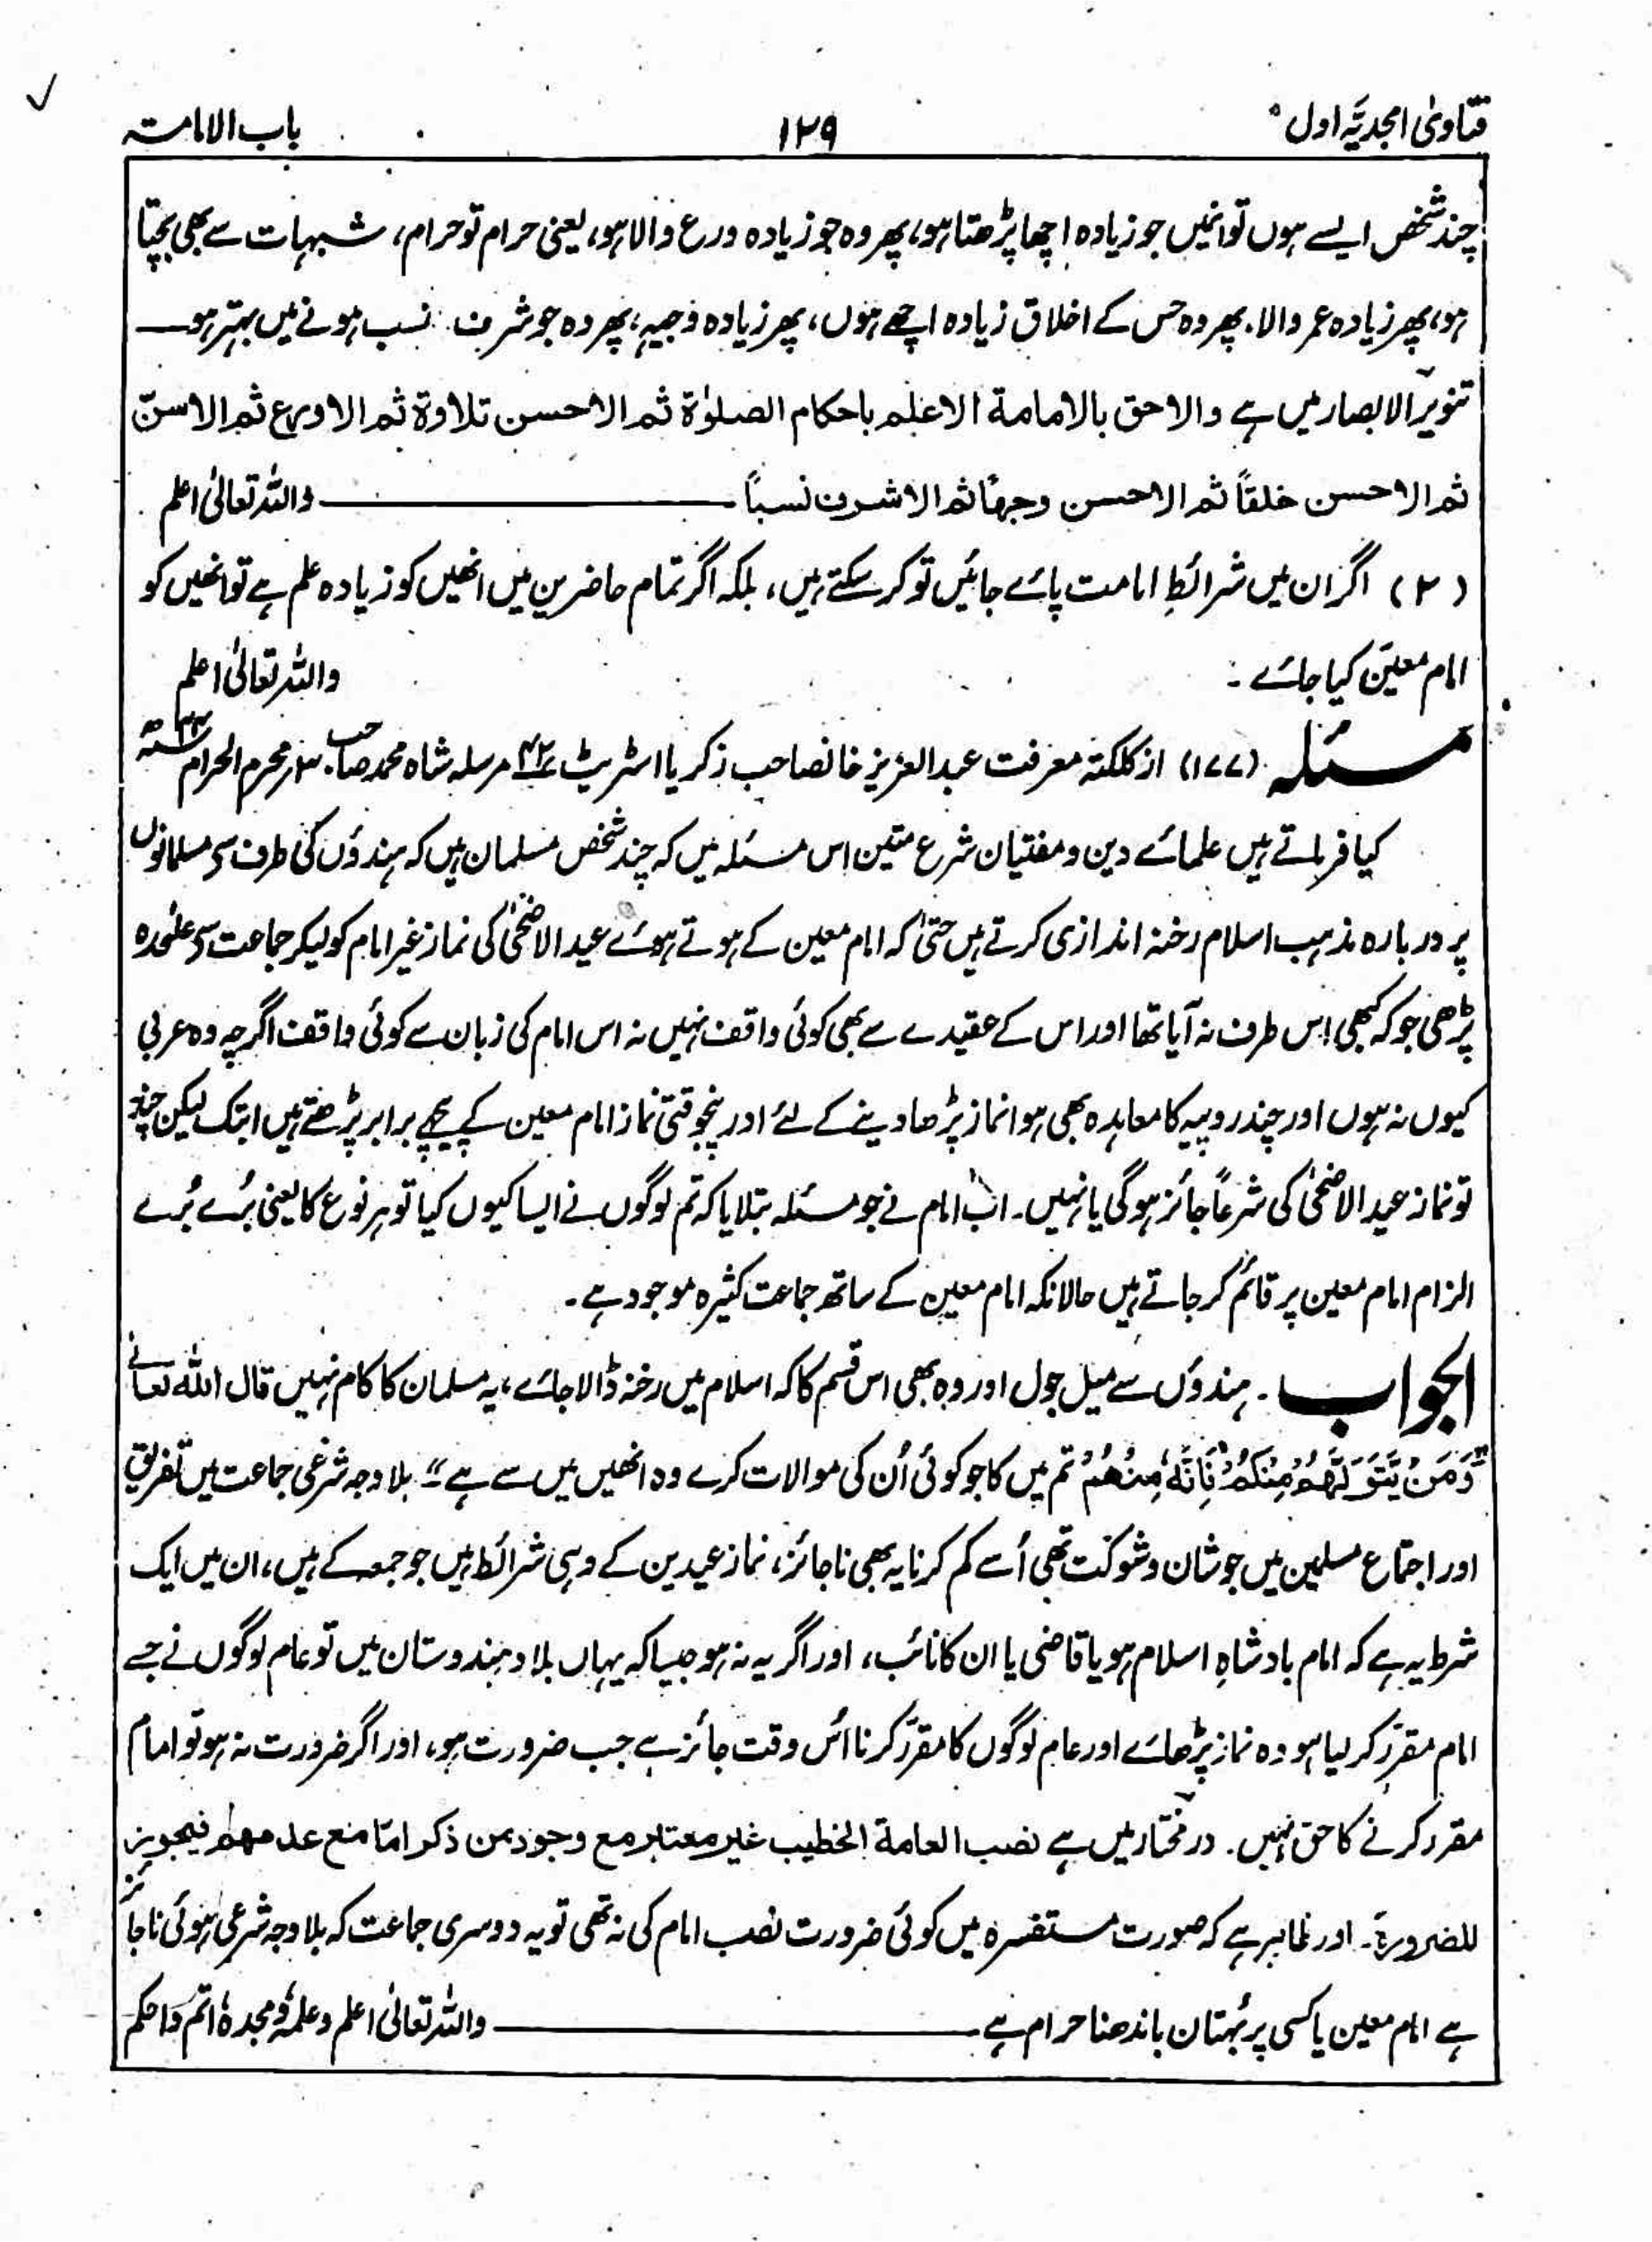 فتاویٰ امجدیّہ اول
۱۲۹
باب الامامتہ
چند شخص ایسے ہوں تو انمیں جو زیادہ اچھا پڑھتا ہو، پھر وہ جو زیادہ ورع والا ہو، یعنی حرام تو حرام، شبہات سے بھی بچتا
ہو، پھر زیادہ عمر والا۔ پھر وہ جس کے اخلاق زیادہ اچھے ہوں، پھر زیادہ وجیہہ، پھر وہ جو شرف نسب ہونے میں بہتر ہو ــــ
تنویر الابصار میں ہے والاحق بالامامة الاعلم باحکام الصلوٰة ثم الاحسن تلاوة ثم الاورع ثم الاسنّ
ثم الاحسن خلقاً ثم الاحسن وجھاً ثم الاشرف نسباً ــــــــــــ واللہ تعالیٰ اعلم
(۲) اگر ان میں شرائطِ امامت پائے جائیں تو کر سکتے ہیں، بلکہ اگر تمام حاضرین میں انھیں کو زیادہ علم ہے تو انھیں کو
امام معین کیا جائے ۔ واللہ تعالیٰ اعلم
مسئلہ (۱۷۷) از کلکتہ معرفت عبدالعزیز خانصاحب زکریا اسٹریٹ ۴۲ مرسلہ شاہ محمد صاحب ۳؍محرم الحرام ۴۴ھ
کیا فرماتے ہیں علمائے دین و مفتیان شرع متین اس مسئلہ میں کہ چند شخص مسلمان ہیں کہ ہندؤں کی طرف سے مسلمانوں
پر دربارہ مذہب اسلام رخنہ اندازی کرتے ہیں حتیٰ کہ امام معین کے ہوتے ہوئے عید الاضحیٰ کی نماز غیر امام کو لیکر جماعت سے علٰحدہ
پڑھی جو کہ کبھی اس طرف نہ آیا تھا اور اس کے عقیدے سے بھی کوئی واقف نہیں نہ اس امام کی زبان سے کوئی واقف اگرچہ وہ عربی
کیوں نہ ہوں اور چند روپیہ کا معاہدہ بھی ہوا نماز پڑھا دینے کے لئے اور پنجوقتی نماز امام معین کے پیچھے برابر پڑھتے ہیں ابتک لیکن چند
تو نماز عید الاضحیٰ کی شرعاً جائز ہوگی یا نہیں۔ اب امام نے جو مسئلہ بتلایا کہ تم لوگوں نے ایسا کیوں کیا تو ہر نوع کا یعنی بُرے بُرے
الزام امام معین پر قائم کر جاتے ہیں حالانکہ امام معین کے ساتھ جماعت کثیرہ موجود ہے۔
الجواب۔ ہندؤں سے میل جول اور وہ بھی اس قسم کا کہ اسلام میں رخنہ ڈالا جائے، یہ مسلمان کا کام نہیں قال اللہ تعالیٰ
"وَمَنْ يَّتَوَلَّهُمْ مِنْكُمْ فَاِنَّهٗ مِنْهُمْ تم میں کا جو کوئی اُن کی موالات کرے وہ انھیں میں سے ہے" بلا وجہ شرعی جماعت میں تفریق
اور اجتماع مسلمین میں جو شان و شوکت تھی اُسے کم کرنا یہ بھی ناجائز، نماز عیدین کے وہی شرائط ہیں جو جمعہ کے ہیں، ان میں ایک
شرط یہ ہے کہ امام بادشاہِ اسلام ہو یا قاضی یا ان کا نائب، اور اگر یہ نہ ہو جیسا کہ یہاں بلاد ہندوستان میں تو عام لوگوں نے جسے
امام مقرر کر لیا ہو وہ نماز پڑھائے اور عام لوگوں کا مقرر کرنا اُس وقت جائز ہے جب ضرورت ہو، اور اگر ضرورت نہ ہو تو امام
مقرر کرنے کا حق نہیں۔ درمختار میں ہے نصب العامة الخطیب غیر معتبر مع وجود من ذکر امّا مع عدمھم فیجوز
للضرورة۔ اور ظاہر ہے کہ صورت مستفسرہ میں کوئی ضرورت نصب امام کی نہ تھی تو یہ دوسری جماعت کہ بلا وجہ شرعی ہوئی ناجائز
ہے امام معین یا کسی پر بُہتان باندھنا حرام ہے ــــــــــــ واللہ تعالیٰ اعلم وعلمہٗ ومجدہٗ اتم واحکم